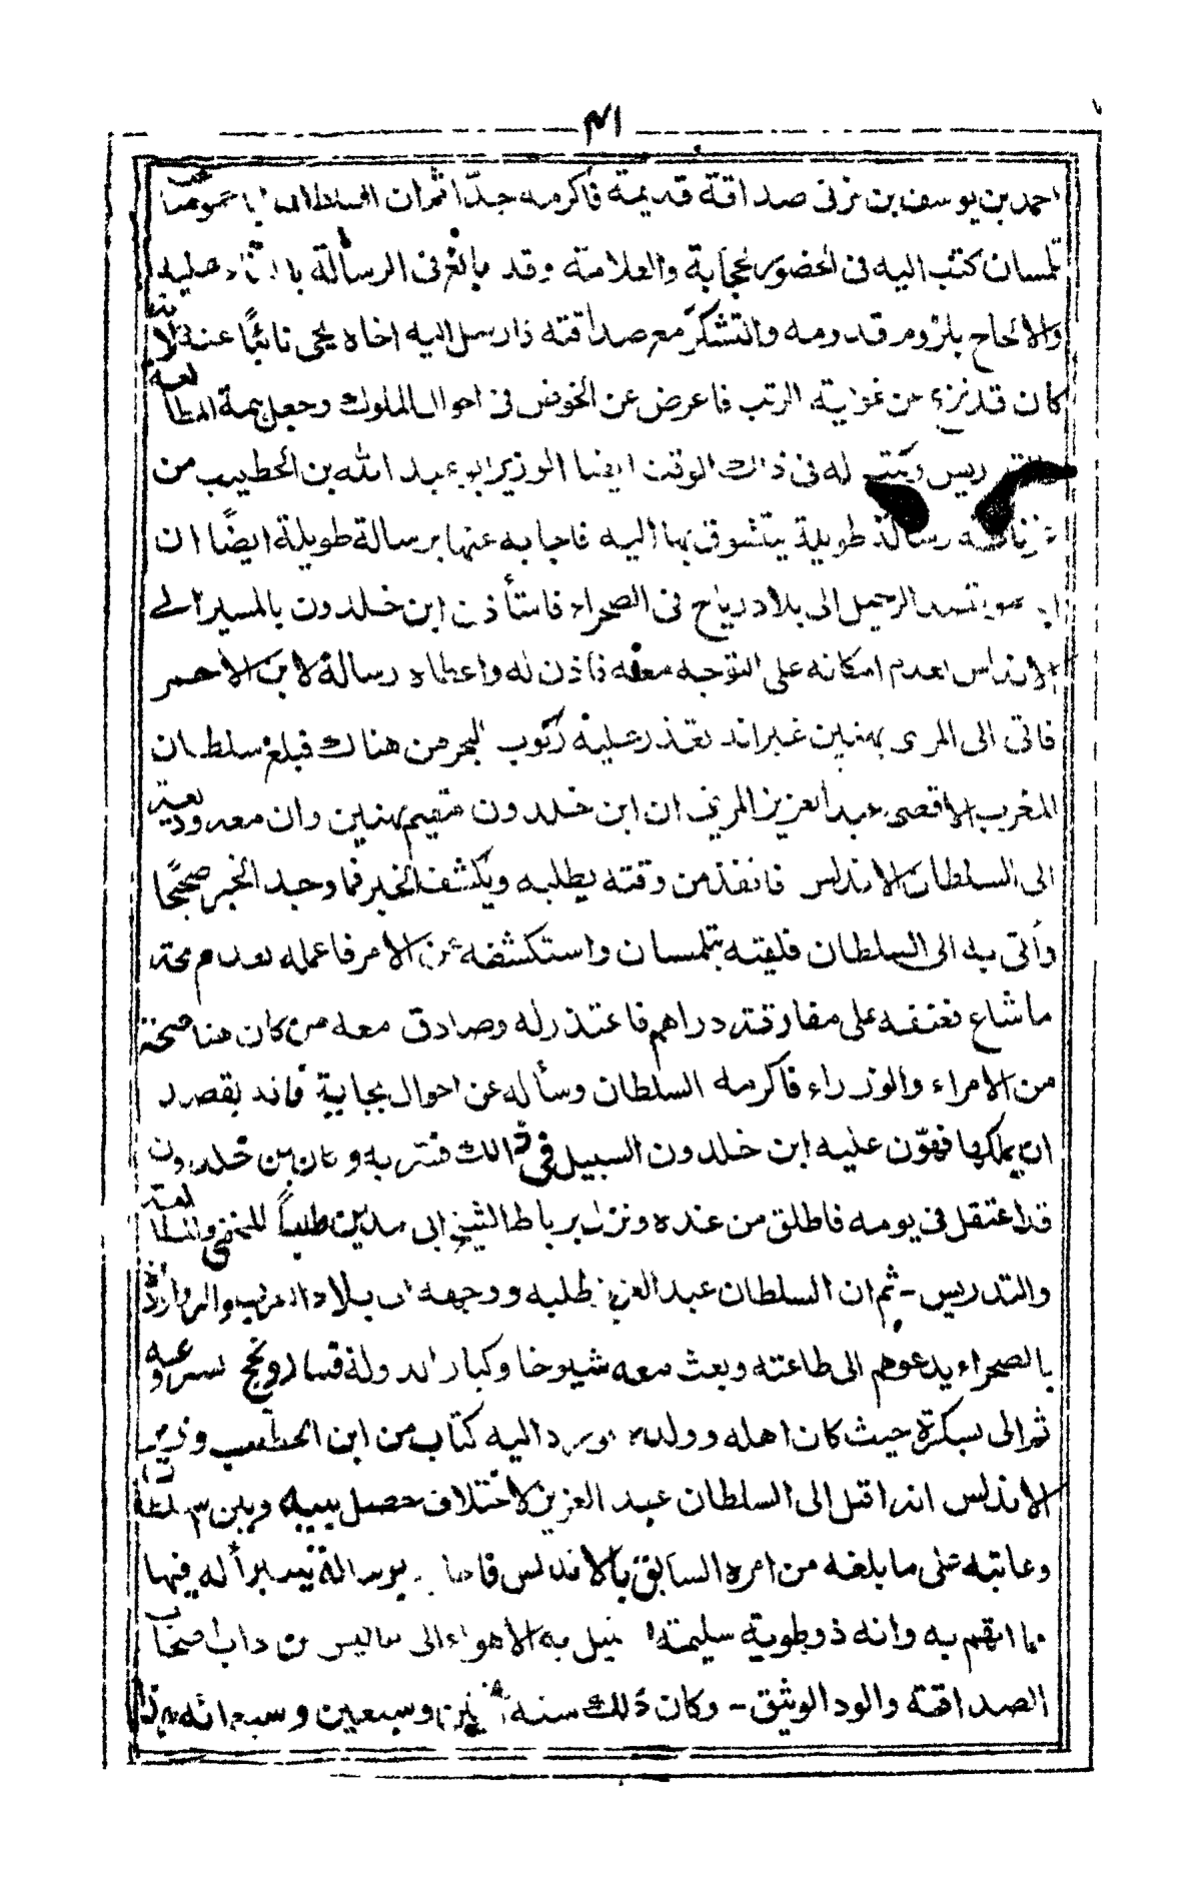 احمد بن يوسف بن مزنى صداقة قديمة فأكرمه جدّا ثم ان السلطان ابا حمو صاحب
تلمسان كتب اليه فى الحضور لحجابة والعلامة وقد بالغ فى الرسالة بالثناء عليه
والالحاح بلزوم قدومه والتشكر مع صداقته فارسل اليه اخاه يحى نائبًا عنه لانه
كان قد نزع عن غواية الرتب فاعرض عن الخوض فى احوال الملوك وجعل همة المطالعة
والتدريس وكتب له فى ذلك الوقت ايضا الوزير ابو عبد الله بن الخطيب من
غرناطة رسالة طويلة يتشوق بها اليه فاجابه عنها برسالة طويلة ايضًا ان
ابا حمو يقصد الرحيل الى بلاد رياح فى الصحراء فاستأذن ابن خلدون بالمسير الى
الاندلس لعدم امكانه على التوجه معه فاذن له واعطاه رسالة لابن الاحمر
فاتى الى المرى بهنين غير انه تعذر عليه ركوب البحر من هناك فبلغ سلطان
المغرب الاقصى عبد العزيز المرينى ان ابن خلدون مقيم بهنين وان معه وديعة
الى السلطان الاندلس فانفذ من وقته يطلبه ويكشف الخبر فما وجد الخبر صحيحًا
وأتى به الى السلطان فلقيه بتلمسان واستكشفه عن الامر فاعمله بعدم صحته
ما شاع فعنفه على مفارقته دراهم فاعتذر له وصادق معه من كان هنا صحته
من الامراء والوزراء فأكرمه السلطان وسأله عن احوال بجاية فانه يقصد
ان يملكها فهوّن عليه ابن خلدون السبيل فى ذالك فسر به وكان ابن خلدون
قد اعتقل فى يومه فاطلق من عنده ونزل برباط الشيخ ابى مدين طلباً للتخفى والمطالعة
والتدريس - ثم ان السلطان عبد العزيز طلبه ووجهه الى بلاد العرب والزوارة
بالصحراء يدعوهم الى طاعته وبعث معه شيوخا وكبار الدولة فسار ونجح
ثم الى بسكرة حيث كان اهله وولده وورد اليه كتاب من ابن الخطيب وزير
الاندلس انه اقبل الى السلطان عبد العزيز لاختلاف حصل بينه وبين سلطانه
وعاتبه على ما بلغه من امره السابق بالاندلس فاجابه برسالة يتبرأ له فيها
مما اتهم به وانه ذو طوية سليمة لا تميل به الاهواء الى ما ليس من داب اصحاب
الصداقة والود الوثيق - وكان ذلك سنة اثنين وسبعين وسبعمائه